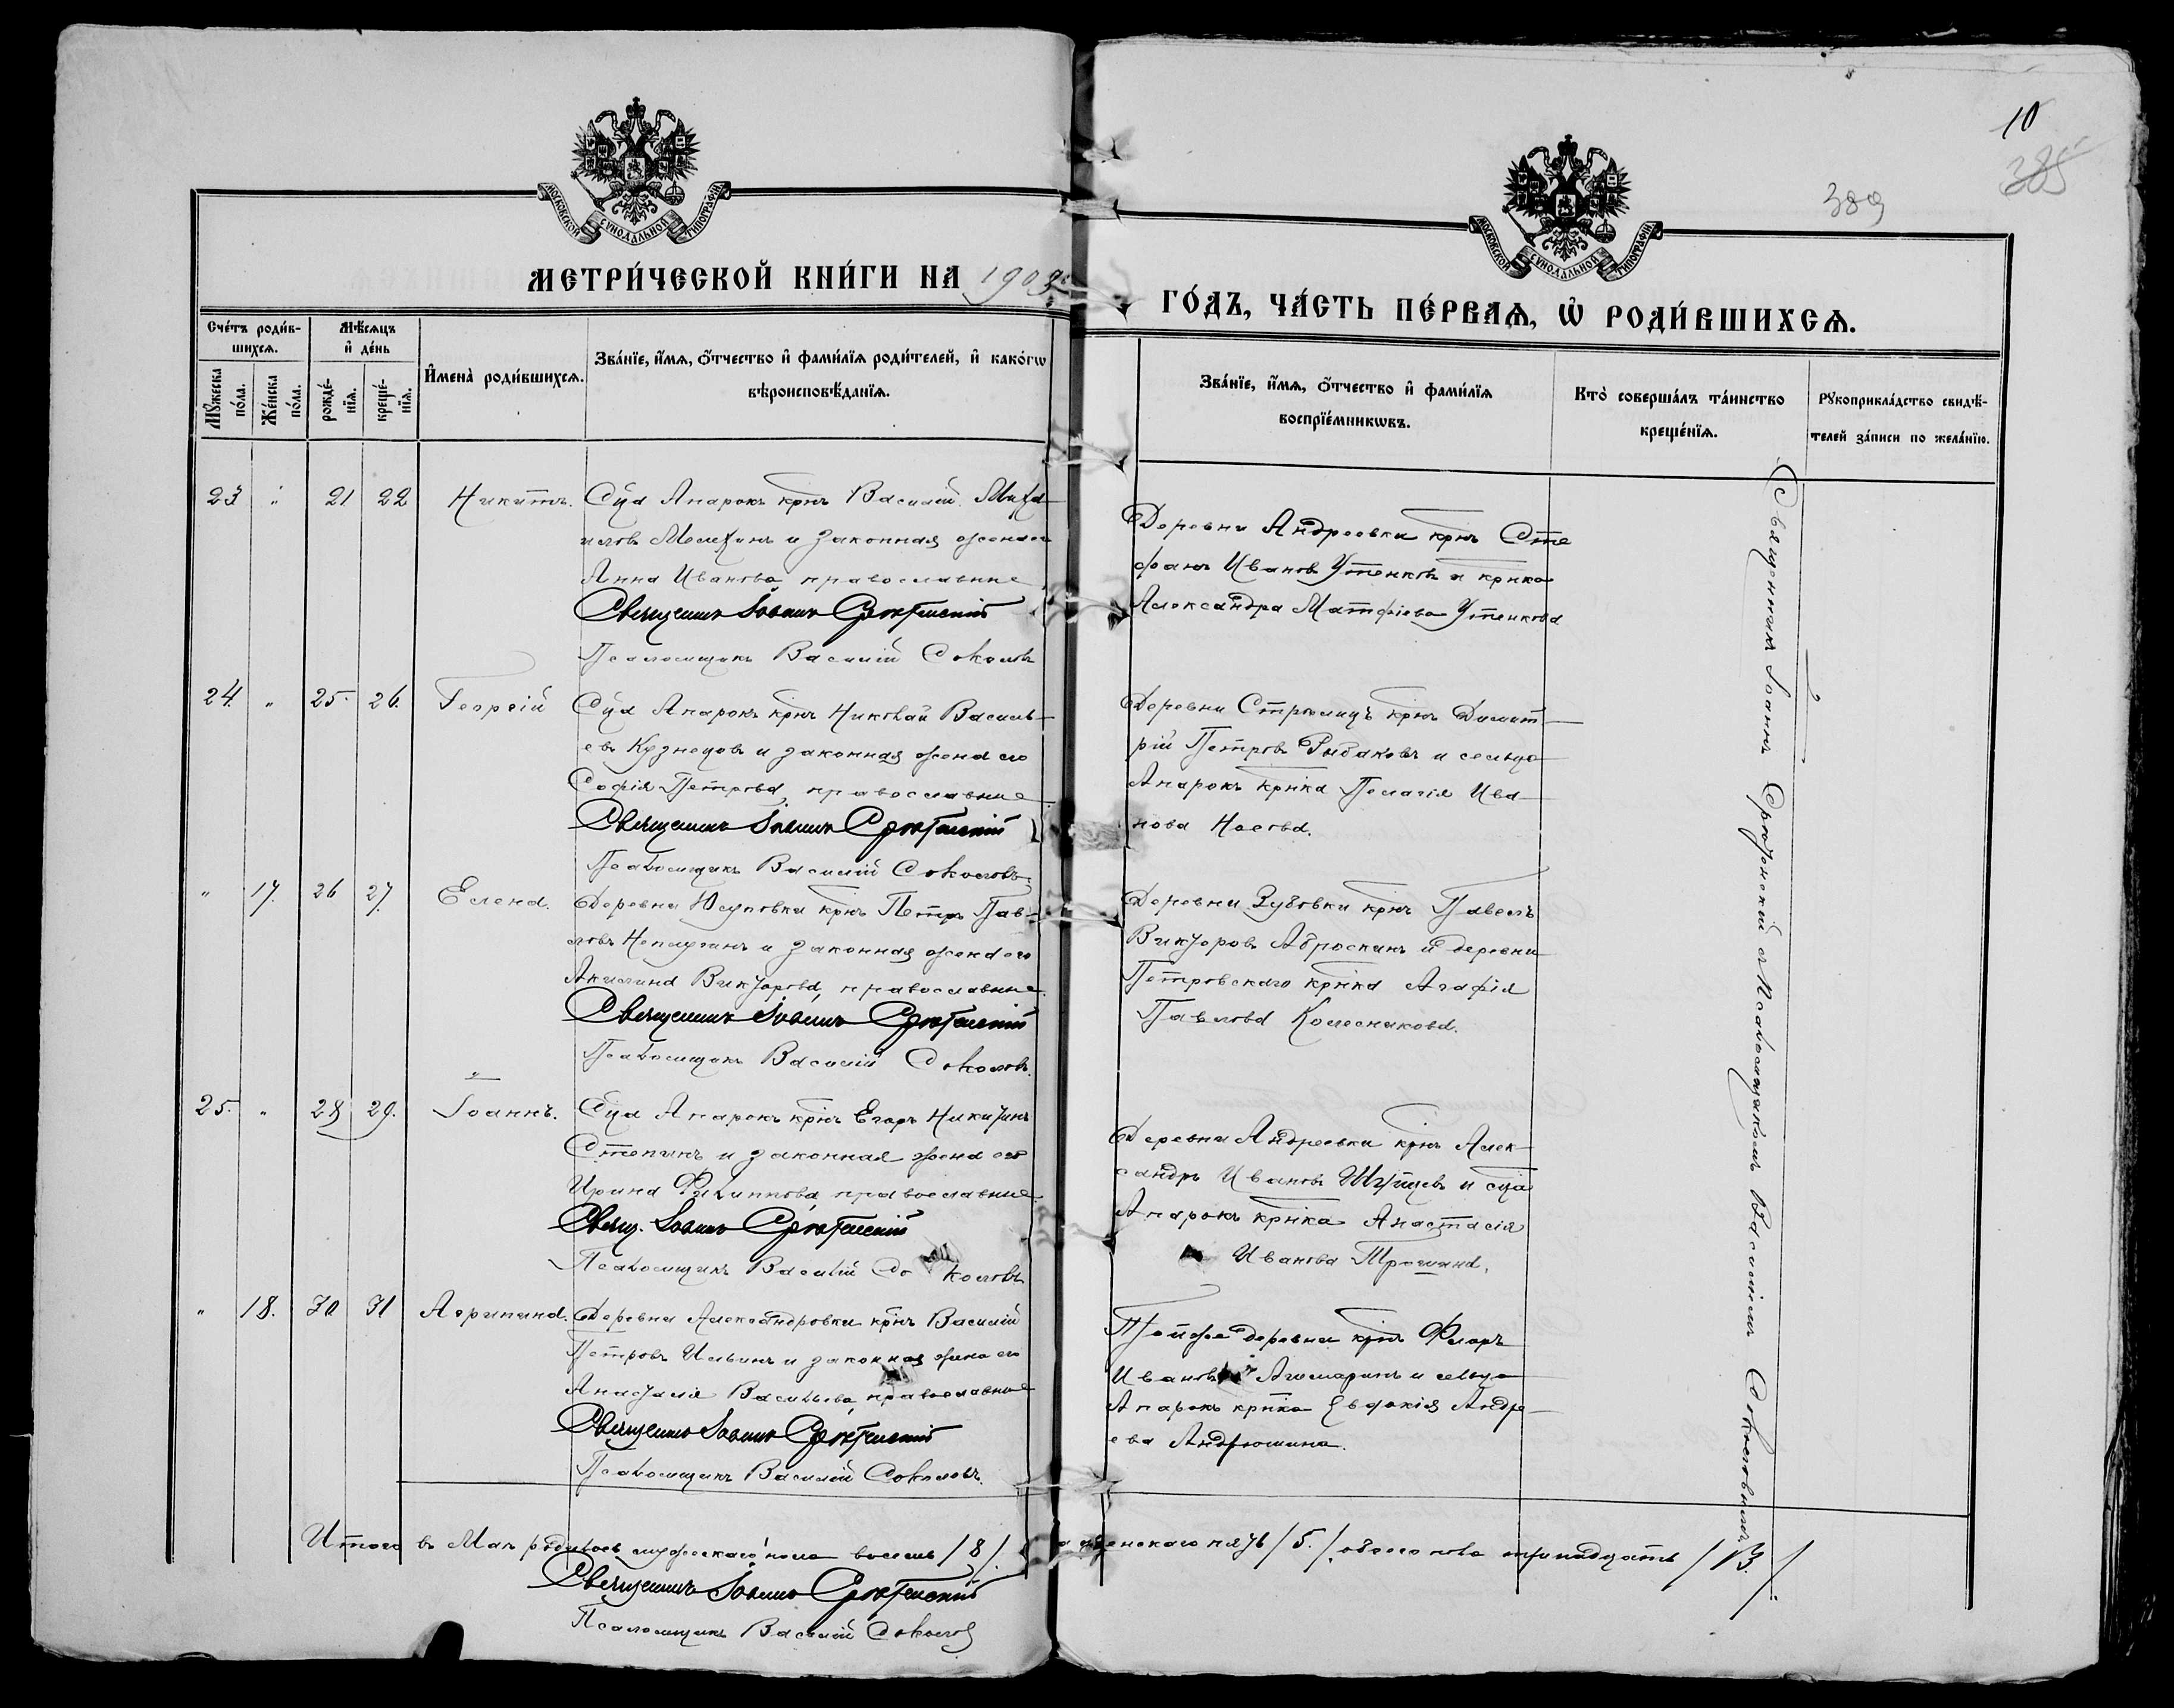 10
385
389
МОСКОВСКОЙ СѴНОДАЛЬНОЙ ТИПОГРАФІИ
МОСКОВСКОЙ СѴНОДАЛЬНОЙ ТИПОГРАФІИ
МЕТРИ́ЧЕСКОЙ КНИ́ГИ НА 1903
ГО́ДЪ, ЧА́СТЬ ПЕ́РВАѦ, Ѽ РОДИ́ВШИХСѦ.
Сче́тъ роди́в-
шихсѧ.
Мѣ́сѧцъ
и҆ де́нь
Мꙋ́жеска
по́ла.
Же́нска
по́ла.
рожде́-
нїѧ.
креще́-
нїѧ.
И҆мена̀ роди́вшихсѧ.
Зва́нїе, и҆́мѧ, ѻ҆́тчество и҆ фами́лїѧ роди́телей, и҆ како́гѡ
вѣроисповѣ́данїѧ.
Зва́нїе, и҆́мѧ, ѻ҆́тчество и҆ фами́лїѧ
воспрїе́мникѡвъ.
Кто̀ соверша́лъ та́инство
креще́нїѧ.
Рꙋкоприкла́дство свидѣ́-
телей за́писи по жела́нїю.
23 " 21 22 Никита. Сца Апарокъ крнъ Василій Миха
иловъ Мелехинъ и законная жена его
Анна Иванова, православные
Священникъ Іоаннъ Срѣтенскій
Псаломщикъ Василій Соколовъ
Деревни Андреевки крнъ Сте
фанъ Ивановъ Утенковъ и крнка
Александра Матфіева Утенкова
24. " 25. 26. Георгій Сца Апарокъ крнъ Николай Василь-
евъ Кузнецовъ и законная жена его
Софія Петрова, православные
Священникъ Іоаннъ Срѣтенскій
Псаломщикъ Василій Соколовъ.
Деревни Стрѣлицъ крнъ Димит-
рій Петровъ Рыбаковъ и сельца
Апарокъ крнка Пелагія Ива-
нова Носова.
" 17. 26 27. Елена. Деревни Юсуповки крнъ Петръ Пав-
ловъ и законная жена его
Акилина Викторова, православные.
Священникъ Іоаннъ Срѣтенскій
Псаломщикъ Василій Соколовъ.
Деревни Зубовки крнъ Павелъ
Викторовъ Аброскинъ и деревни
Петровскаго крнка Агафія
Павлова Колесникова.
25. " 28 29. Іоаннъ. Сца Апарокъ крнъ Егоръ Никитинъ
Степинъ и законная жена его
Ирина Филиппова, православные.
Свящ. Іоаннъ Срѣтенскій
Псаломщикъ Василій Соколовъ
Деревни Андреевки крнъ Алек-
сандръ Ивановъ и сца
Апарокъ крнка Анастасія
Иванова Трошина.
" 18. 30 31 Агрипина. Деревни Александровки крнъ Василій
Петровъ Ильинъ и законная жена его
Анастасія Васильева, православные
Священникъ Іоаннъ Срѣтенскій
Псаломщикъ Василій Соколовъ.
Той же деревни крнъ Флоръ
Ивановъ и сельца
Апарокъ крнка Евдокія Андре-
ева Андрюшина.
Священникъ Іоаннъ Срѣтенскій съ Псаломщикомъ Василіемъ Соколовымъ.
Итого въ Маѣ родилось мужескаго пола восемь /8/. а женскаго пять /5./ обоего пола тринадцать /13./
Священникъ Іоаннъ Срѣтенскій
Псаломщикъ Василій Соколовъ